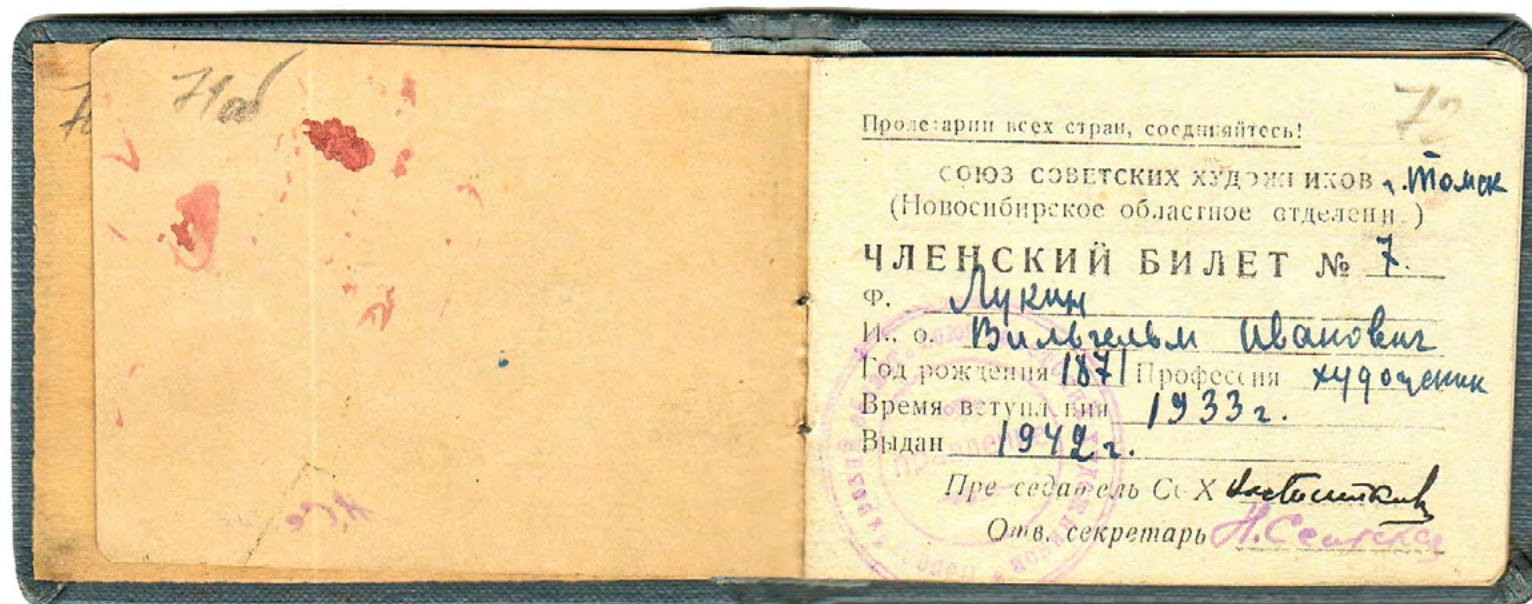 71об
72
Пролетарии всех стран, соединяйтесь!
СОЮЗ СОВЕТСКИХ ХУДОЖНИКОВ г. Томск
(Новосибирское областное отделение)
ЧЛЕНСКИЙ БИЛЕТ № 7.
Ф. Лукин
И., о. Вильгельм Иванович
Год рождения 1871 Профессия художник
Время вступления 1933 г.
Выдан 1942 г.
Председатель ССХ
Отв. секретарь